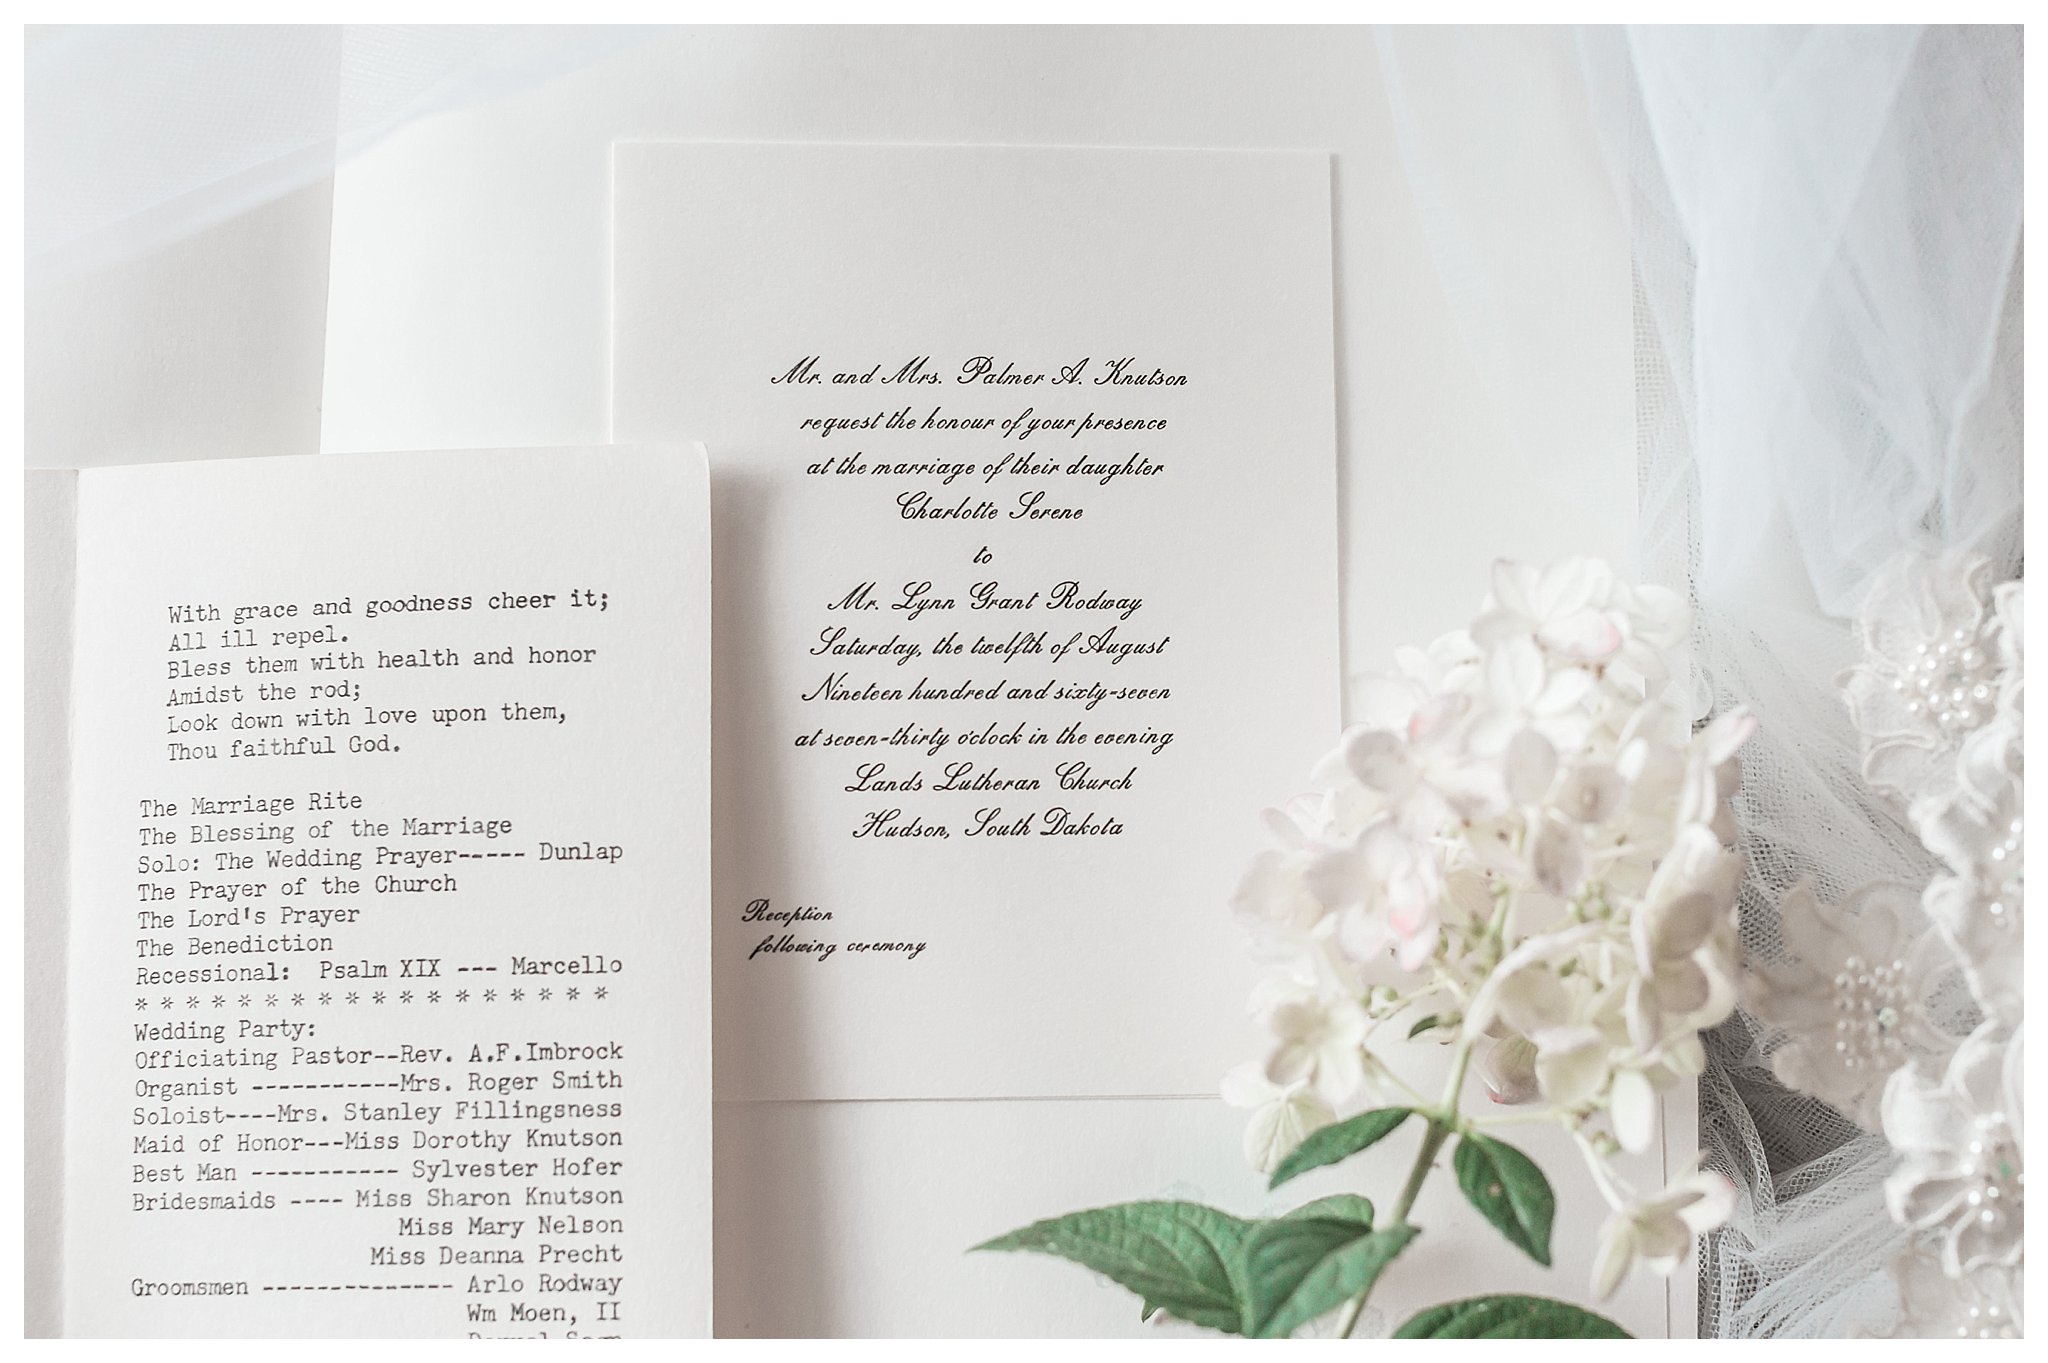 With grace and goodness cheer it;
All ill repel.
Bless them with health and honor
Amidst the rod;
Look down with love upon them,
Thou faithful God.
The Marriage Rite
The Blessing of the Marriage
Solo: The Wedding Prayer----- Dunlap
The Prayer of the Church
The Lord's Prayer
The Benediction
Recessional: Psalm XIX --- Marcello
* * * * * * * * * * * * * * * * * *
Wedding Party:
Officiating Pastor--Rev. A.F.Imbrock
Organist -----------Mrs. Roger Smith
Soloist----Mrs. Stanley Fillingsness
Maid of Honor---Miss Dorothy Knutson
Best Man ----------- Sylvester Hofer
Bridesmaids ---- Miss Sharon Knutson
Miss Mary Nelson
Miss Deanna Precht
Groomsmen -------------- Arlo Rodway
Wm Moen, II
Mr. and Mrs. Palmer A. Knutson
request the honour of your presence
at the marriage of their daughter
Charlotte Serene
to
Mr. Lynn Grant Rodway
Saturday, the twelfth of August
Nineteen hundred and sixty-seven
at seven-thirty o'clock in the evening
Lands Lutheran Church
Hudson, South Dakota
Reception
following ceremony